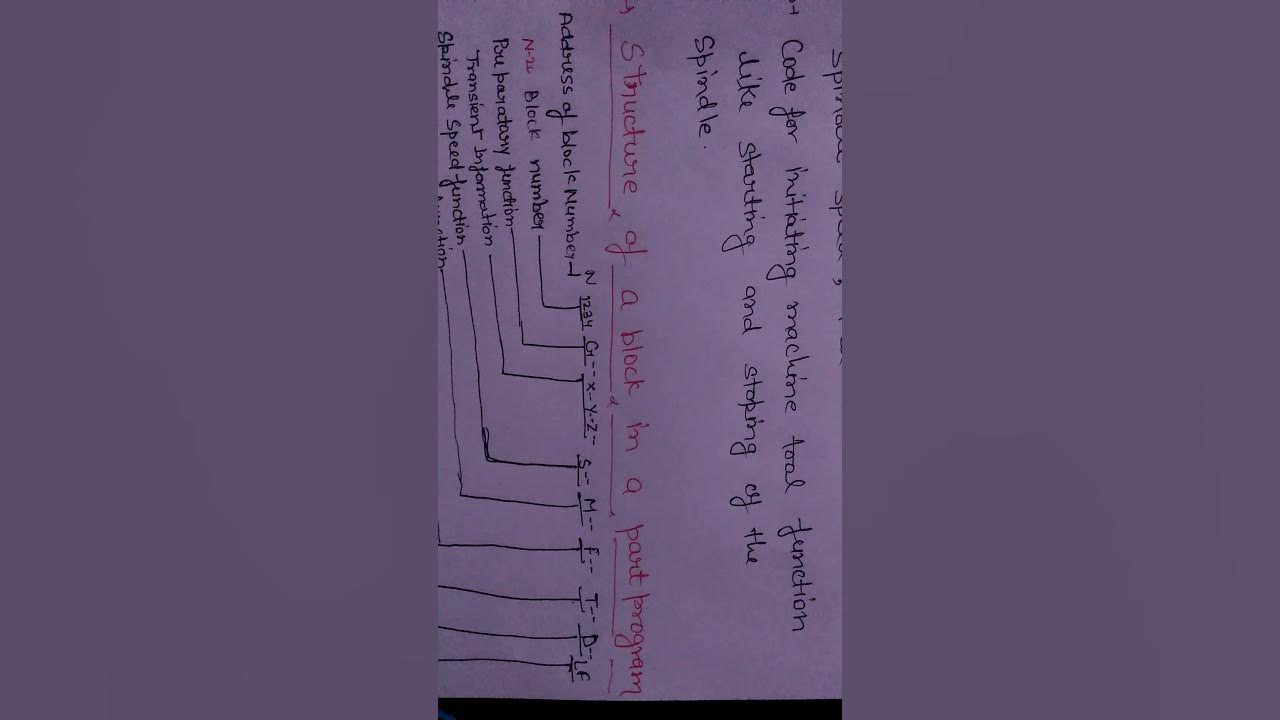 Spindle speed,
→ Code for initiating machine tool function
like starting and stoping of the
Spindle.
→ Structure of a block in a part program
N 1234 G-- X-- Y-- Z-- S-- M-- F-- T-- D-- LF
Address of block Number
Block number
Preparatary function
Transient Information
Spindle Speed function